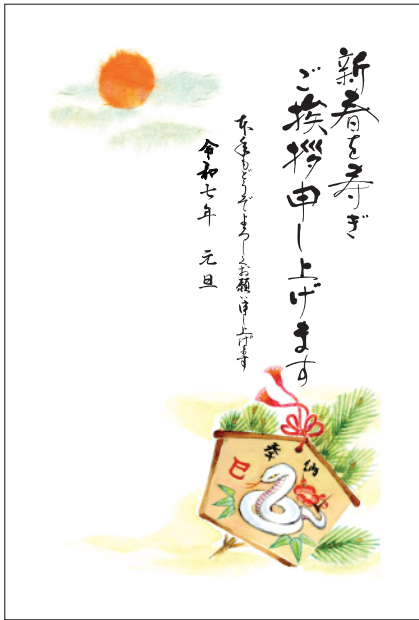 新春を寿ぎ
ご挨拶申し上げます
本年もどうぞよろしくお願い申し上げます
令和七年 元旦
奉納
巳